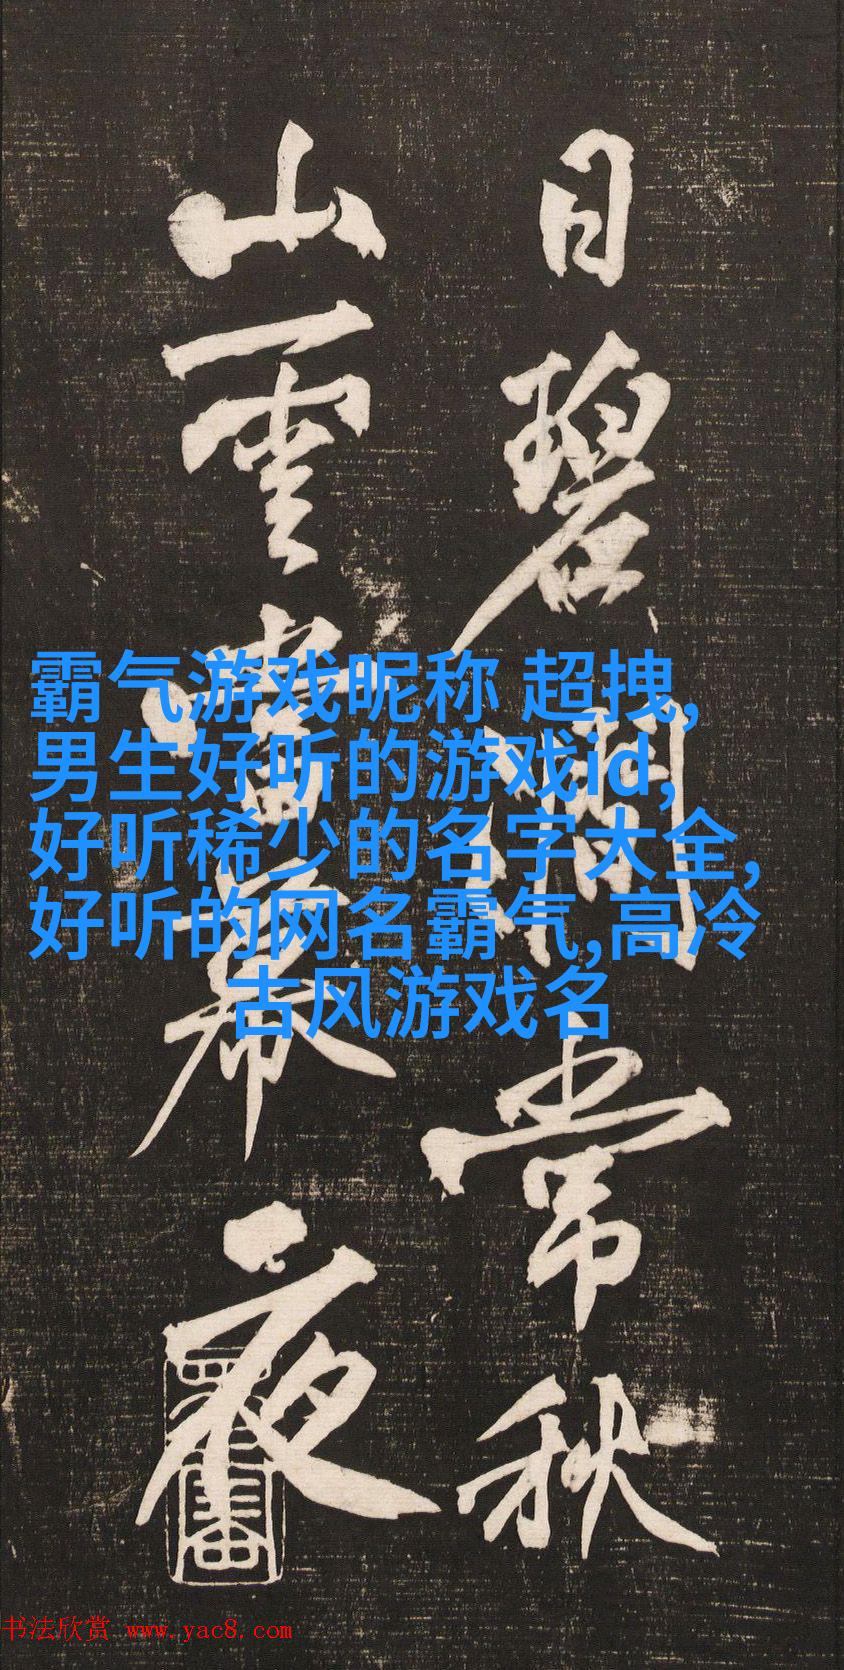 日碧澗常秋
山雲當幕夜
霸气游戏昵称 超拽,
男生好听的游戏id,
好听稀少的名字大全,
好听的网名霸气,高冷
古风游戏名
书法欣赏 www.yac8.com